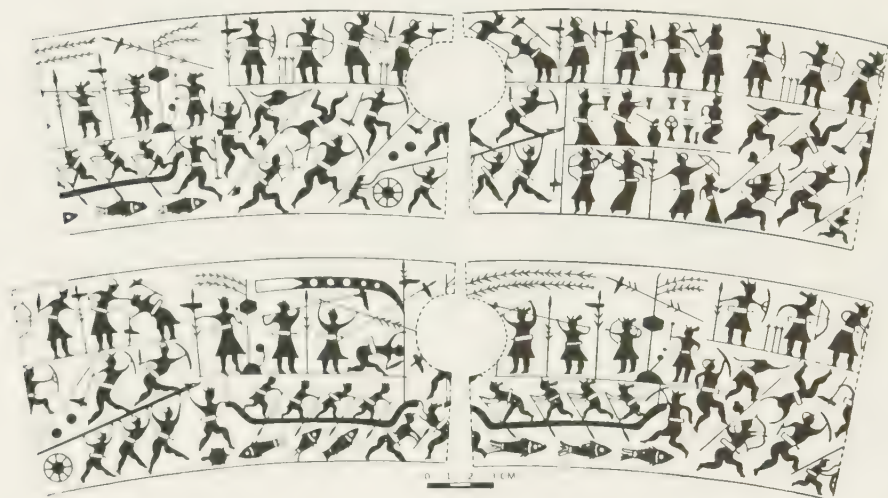 0 1 2 3 CM